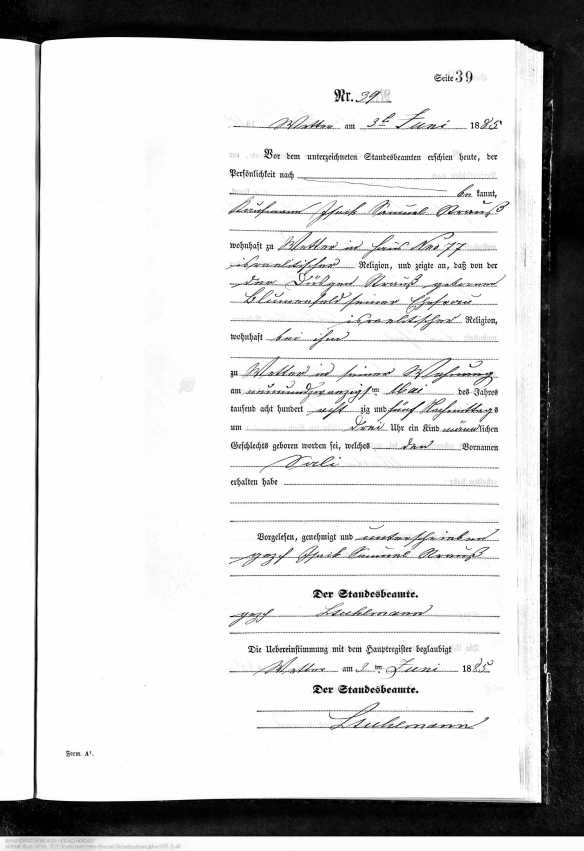 Seite 39
Nr. 39
Wetter am 3t Juni 1885
Vor dem unterzeichneten Standesbeamten erschien heute, der
Persönlichkeit nach
be kannt,
Kaufmann Isack Samuel Strauß
wohnhaft zu Wetter in Haus Nro 77
israelitischer Religion, und zeigte an, daß von der
Strauß geborene
Blumenfeld seiner Ehefrau
israelitischer Religion,
wohnhaft bei ihm
zu Wetter in seiner Wohnung
am neunundzwanzigsten Mai des Jahres
tausend acht hundert acht zig und fünf Nachmittags
um drei Uhr ein Kind männlichen
Geschlechts geboren worden sei, welches den Vornamen
Sali
erhalten habe
Vorgelesen, genehmigt und unterschrieben
gez Isack Samuel Strauß
Der Standesbeamte.
gez
Die Uebereinstimmung mit dem Hauptregister beglaubigt
Wetter am 3ten Juni 1885
Der Standesbeamte.
Form. A¹.